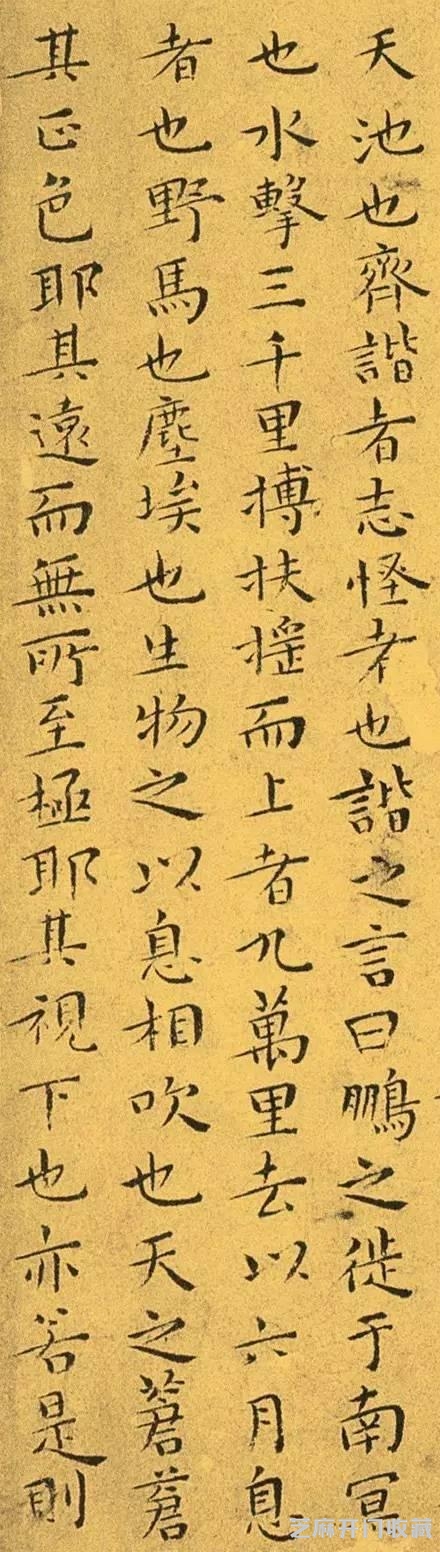 天池也齊諧者志怪者也諧之言曰鵬之徙于南冥
也水擊三千里搏扶揺而上者九萬里去以六月息
者也野馬也塵埃也生物之以息相吹也天之蒼蒼
其正色耶其遠而無所至極耶其視下也亦若是則
芝麻开门收藏